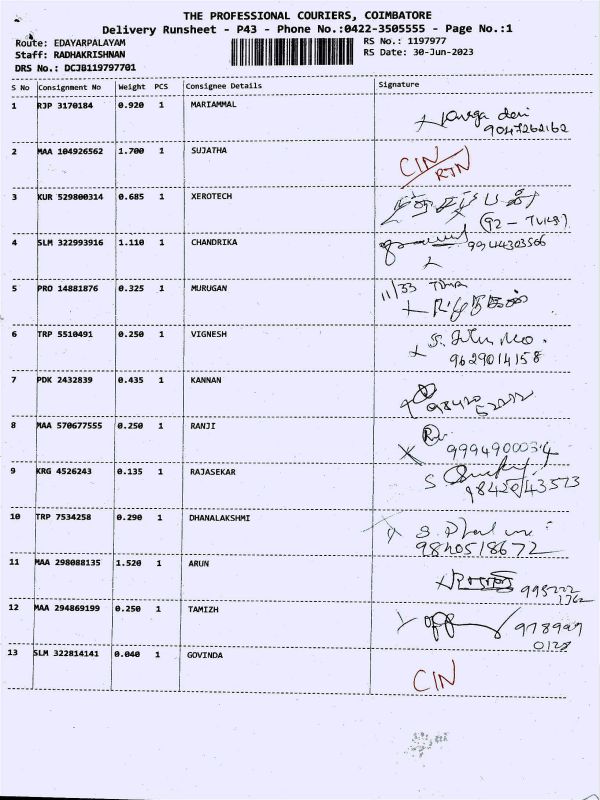 THE PROFESSIONAL COURIERS, COIMBATORE
Delivery Runsheet - P43 - Phone No.:0422-3505555 - Page No.:1
Route: EDAYARPALAYAM
RS No.: 1197977
Staff: RADHAKRISHNAN
RS Date: 30-Jun-2023
DRS No.: DCJB119797701
S No Consignment No Weight PCS Consignee Details Signature
1 RJP 3170184 0.920 1 MARIAMMAL
9047262162
2 MAA 104926562 1.700 1 SUJATHA
CIN
RTN
3 KUR 529800314 0.685 1 XEROTECH
4 SLM 322993916 1.110 1 CHANDRIKA
9944303566
5 PRO 14881876 0.325 1 MURUGAN
11/33
6 TRP 5510491 0.250 1 VIGNESH
9629014158
7 PDK 2432839 0.435 1 KANNAN
8 MAA 570677555 0.250 1 RANJI
9 KRG 4526243 0.135 1 RAJASEKAR
9842043573
10 TRP 7534258 0.290 1 DHANALAKSHMI
11 MAA 298088135 1.520 1 ARUN
12 MAA 294869199 0.250 1 TAMIZH
13 SLM 322814141 0.040 1 GOVINDA
CIN